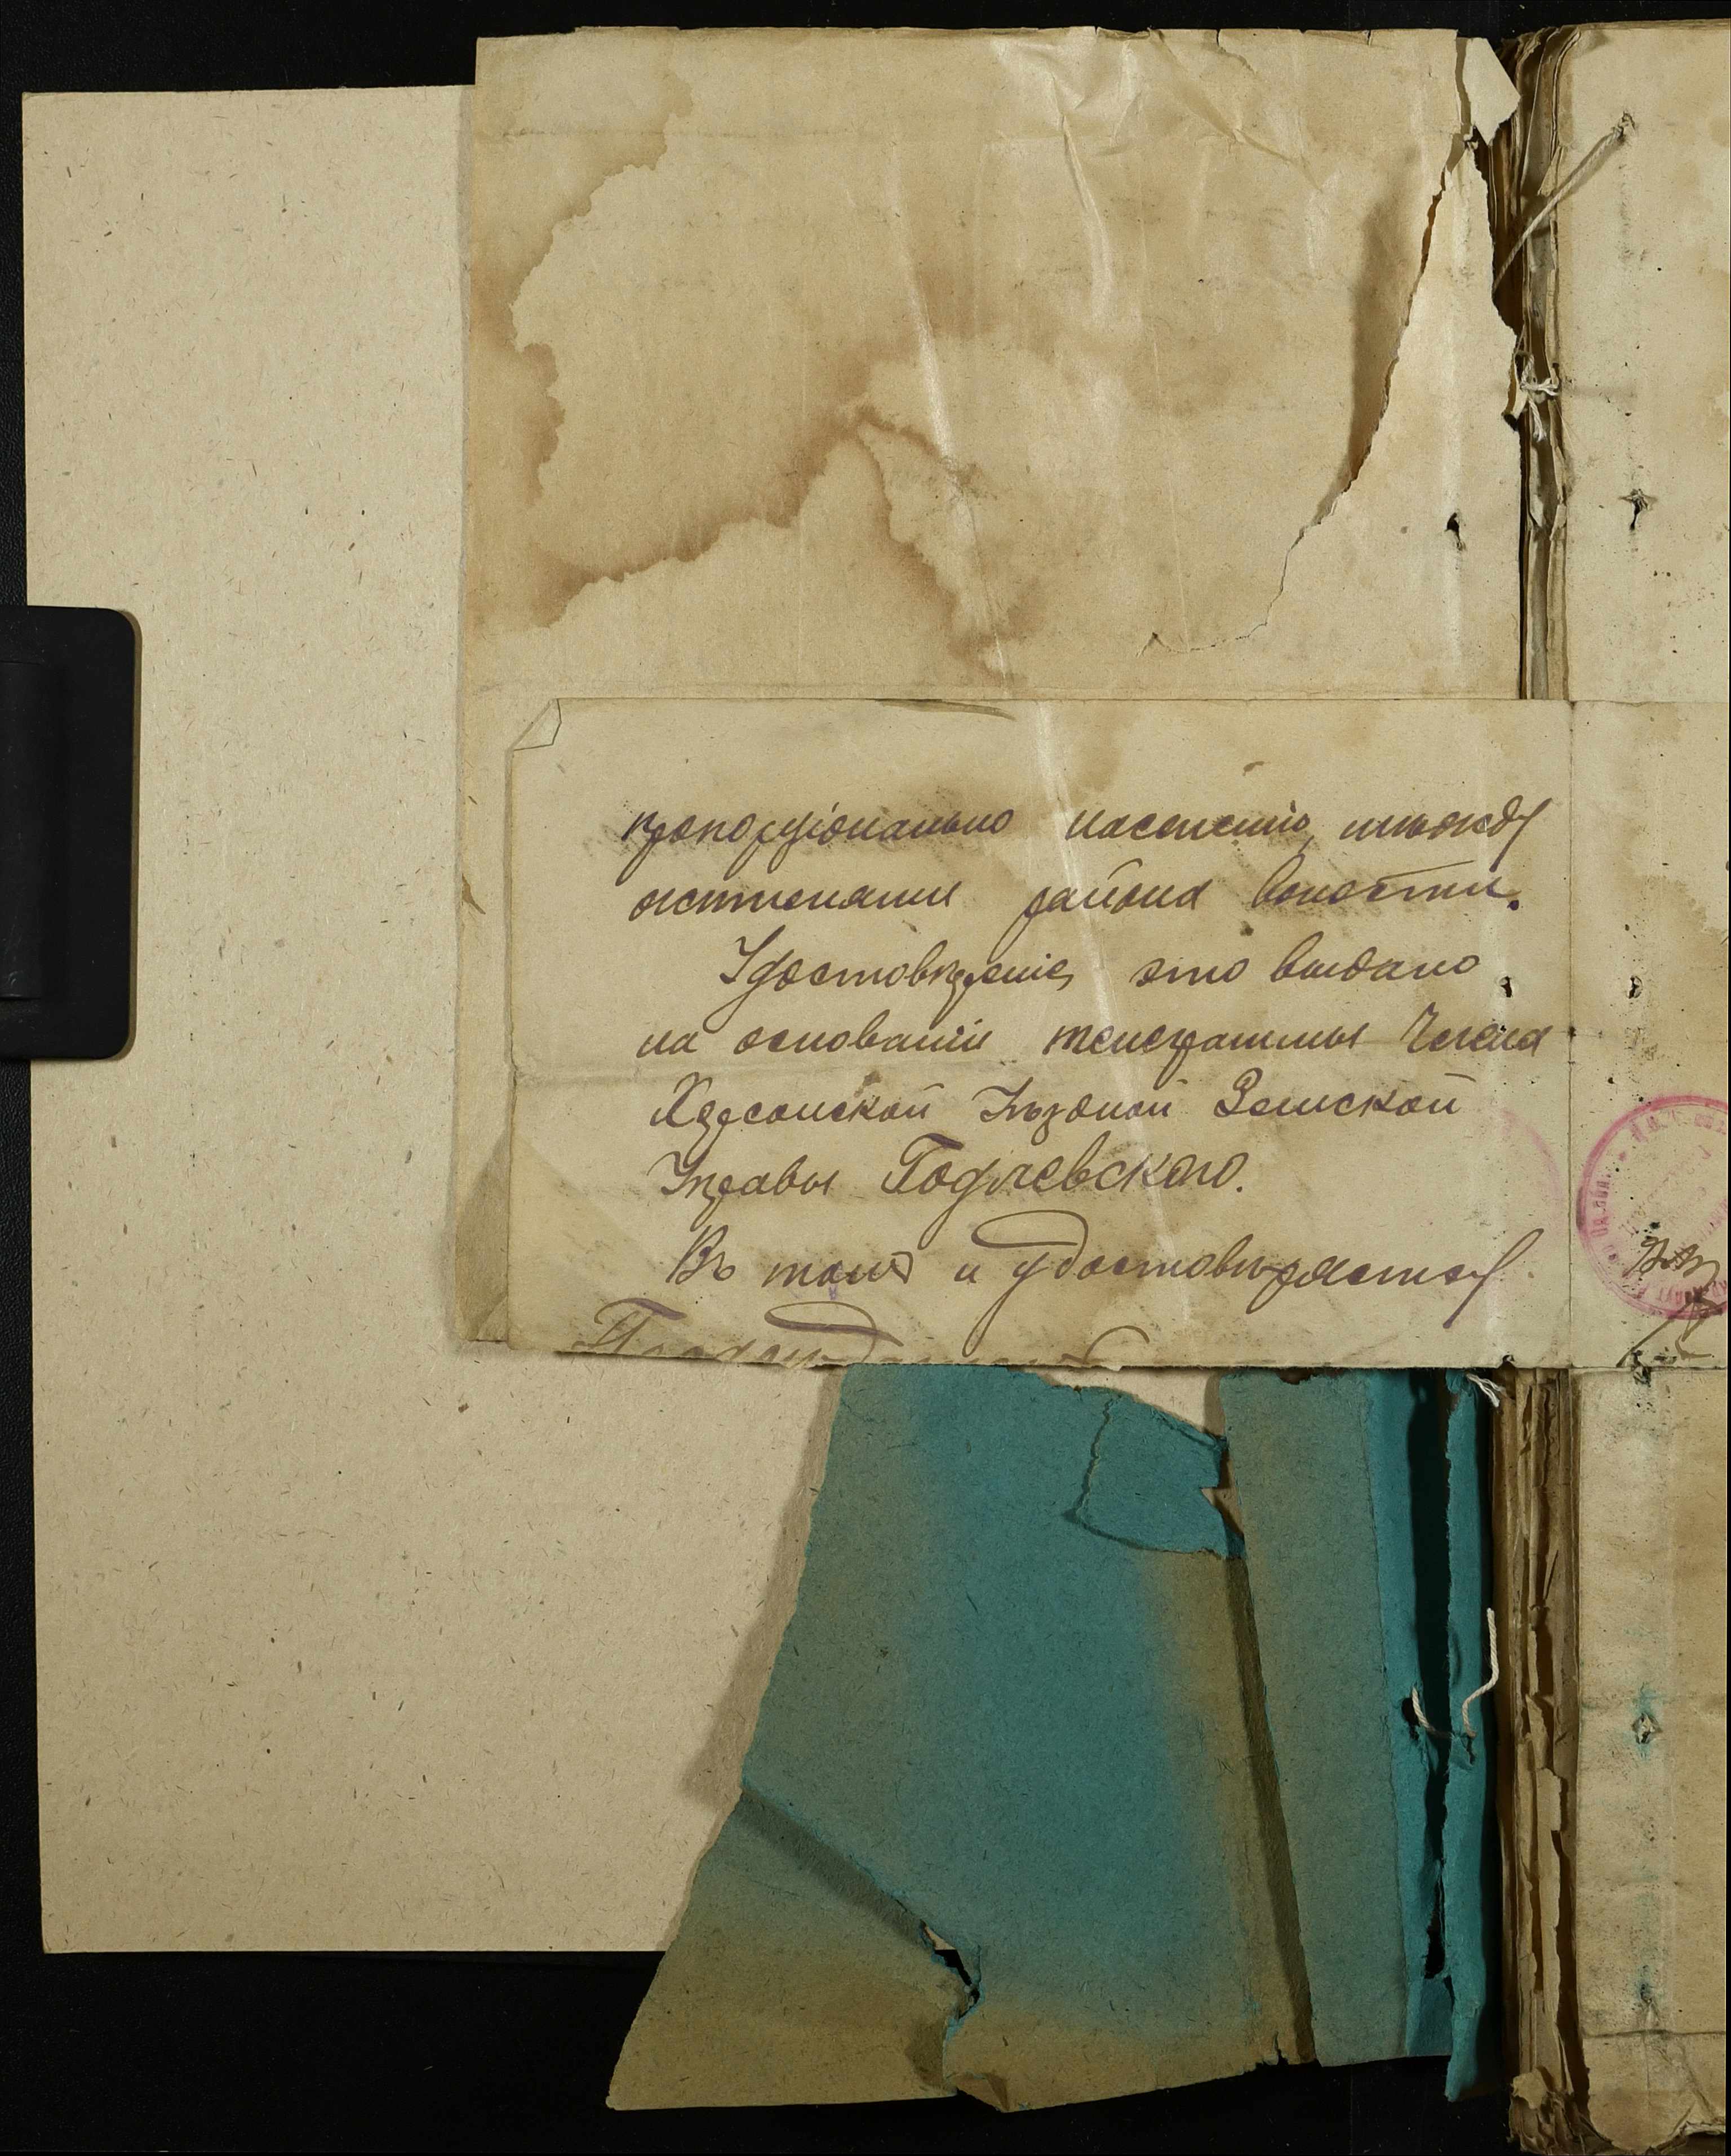 пропорціонально населенію, между
жителями района волости.
Удостовѣреніе это выдано
на основаніи телеграммы Члена
Херсонской Уѣздной Земской
Управы Годлевского.
Въ томъ и удостовѣряется